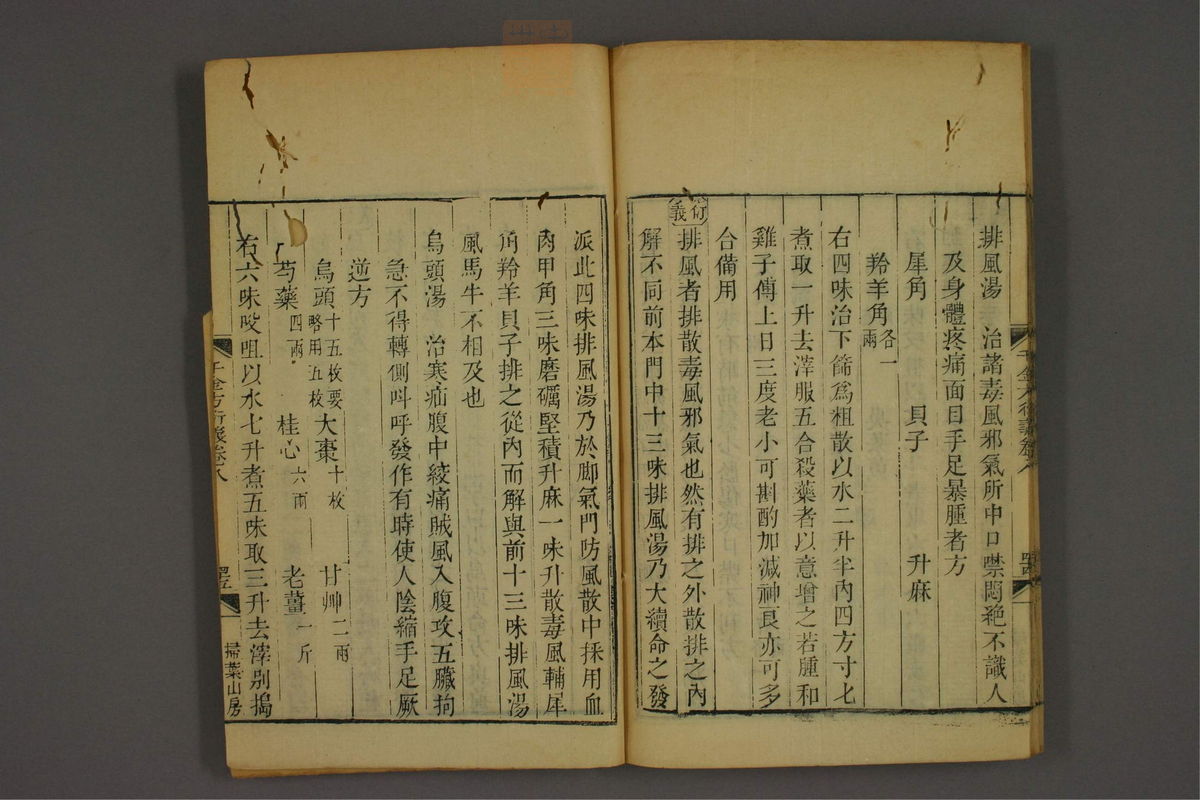 排風湯　治諸毒風邪氣所中口噤悶絶不識人
及身體疼痛面目手足暴腫者方
犀角　貝子　升麻
羚羊角各一兩
右四味治下篩爲粗散以水二升半內四方寸匕
煮取一升去滓服五合殺藥者以意增之若腫和
雞子傅上日三度老小可斟酌加減神良亦可多
合備用
衍義
排風者排散毒風邪氣也然有排之外散排之內
解不同前本門中十三味排風湯乃大續命之發
派此四味排風湯乃於脚氣門防風散中採用血
肉甲角三味磨礪堅積升麻一味升散毒風輔犀
角羚羊貝子排之從內而解與前十三味排風湯
風馬牛不相及也
烏頭湯　治寒疝腹中絞痛賊風入腹攻五臟拘
急不得轉側叫呼發作有時使人陰縮手足厥
逆方
烏頭十五枚要略用五枚　大棗十枚　甘艸二兩
芍藥四兩　桂心六兩　老薑一斤
右六味㕮咀以水七升煮五味取三升去滓别搗
千金方衍義卷八
掃葉山房